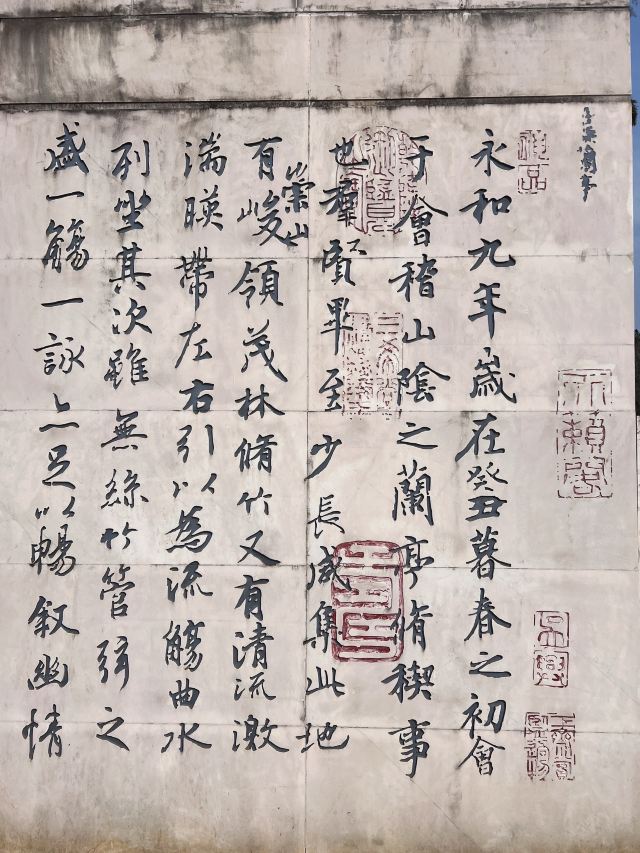 天籟閣
神品
吳興
永和九年歲在癸丑暮春之初會
于會稽山陰之蘭亭脩稧事
也羣賢畢至少長咸集此地
有崇山峻領茂林脩竹又有清流激
湍暎帶左右引以為流觴曲水
列坐其次雖無絲竹管弦之
盛一觴一詠亦足以暢叙幽情